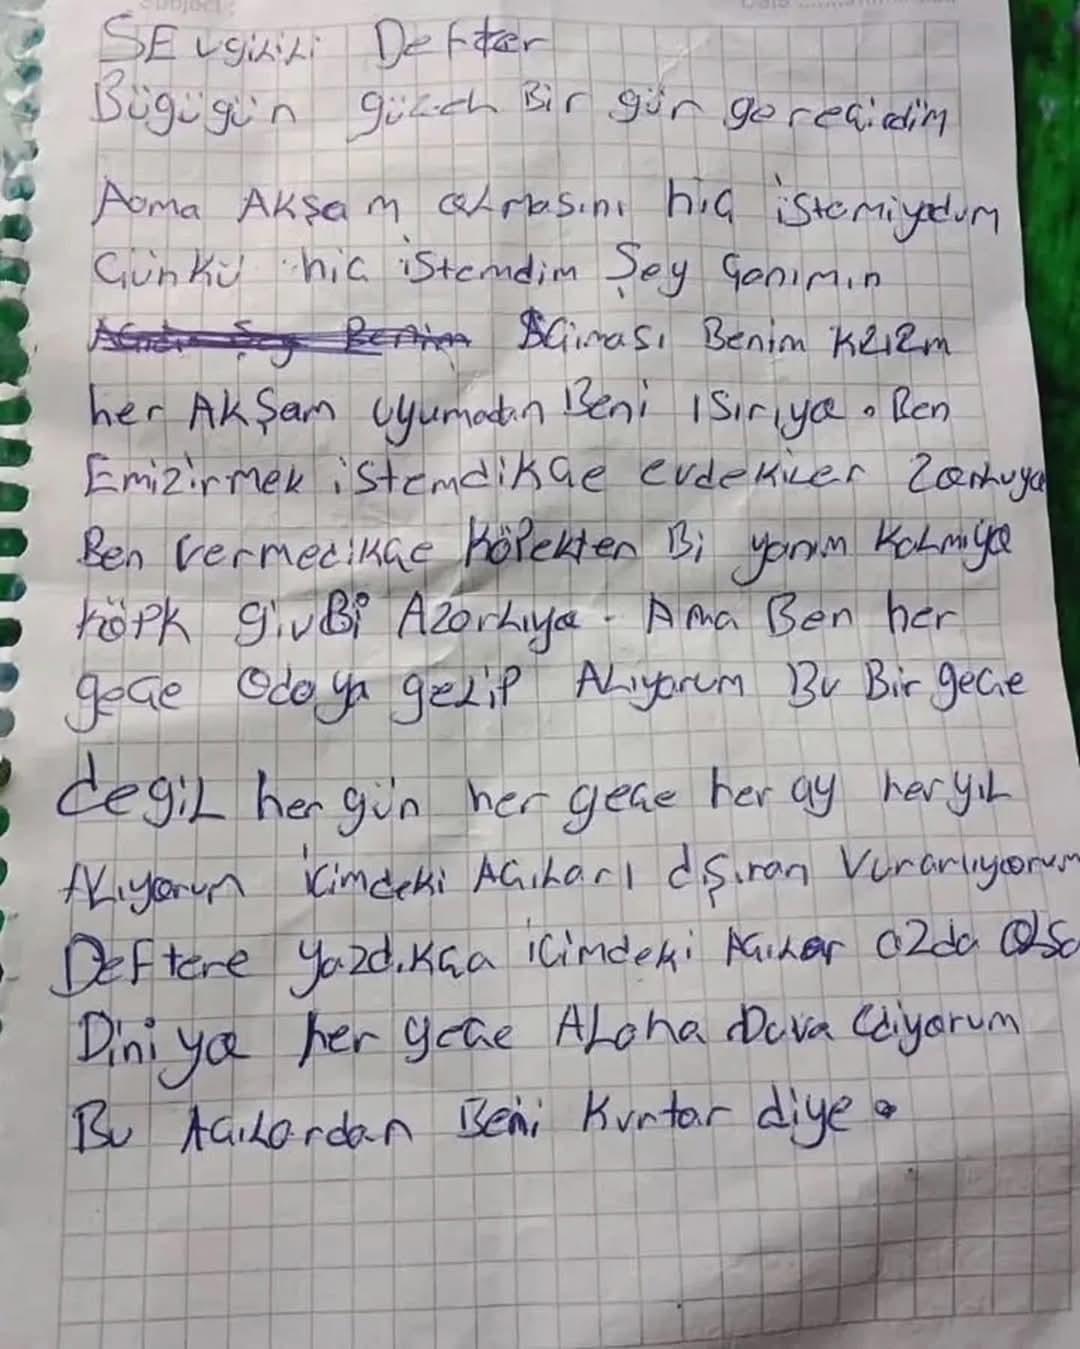 Subject:
SEvgilili Defter
Bügügün güzel Bir gün gereçirdim
Aoma Akşam olmasını hiç istemiyodum
Günkü hiç istemdim Şey Ganımın
AGıması Benim kızızm
her AkŞam Uyumadan Beni ısırıya. Ben
Emizirmek istemdikGe evdekiler Zorluya
Ben vermedikGe Köpekten Bi yanım Kalmıya
Köpk givBi Azarlıya. Ama Ben her
geGe Odaya gelip Alıyarum Bu Bir geGe
degil her gün her geGe her ay her yıl
Alıyorum içimdeki AGıları dışıran Vurarlıyorum
Deftere yazdıkGa içimdeki AGılar azda olsa
Diniya her geGe Aloha Duva Ediyorum
Bu AGılardan Beni Kurtar diye.